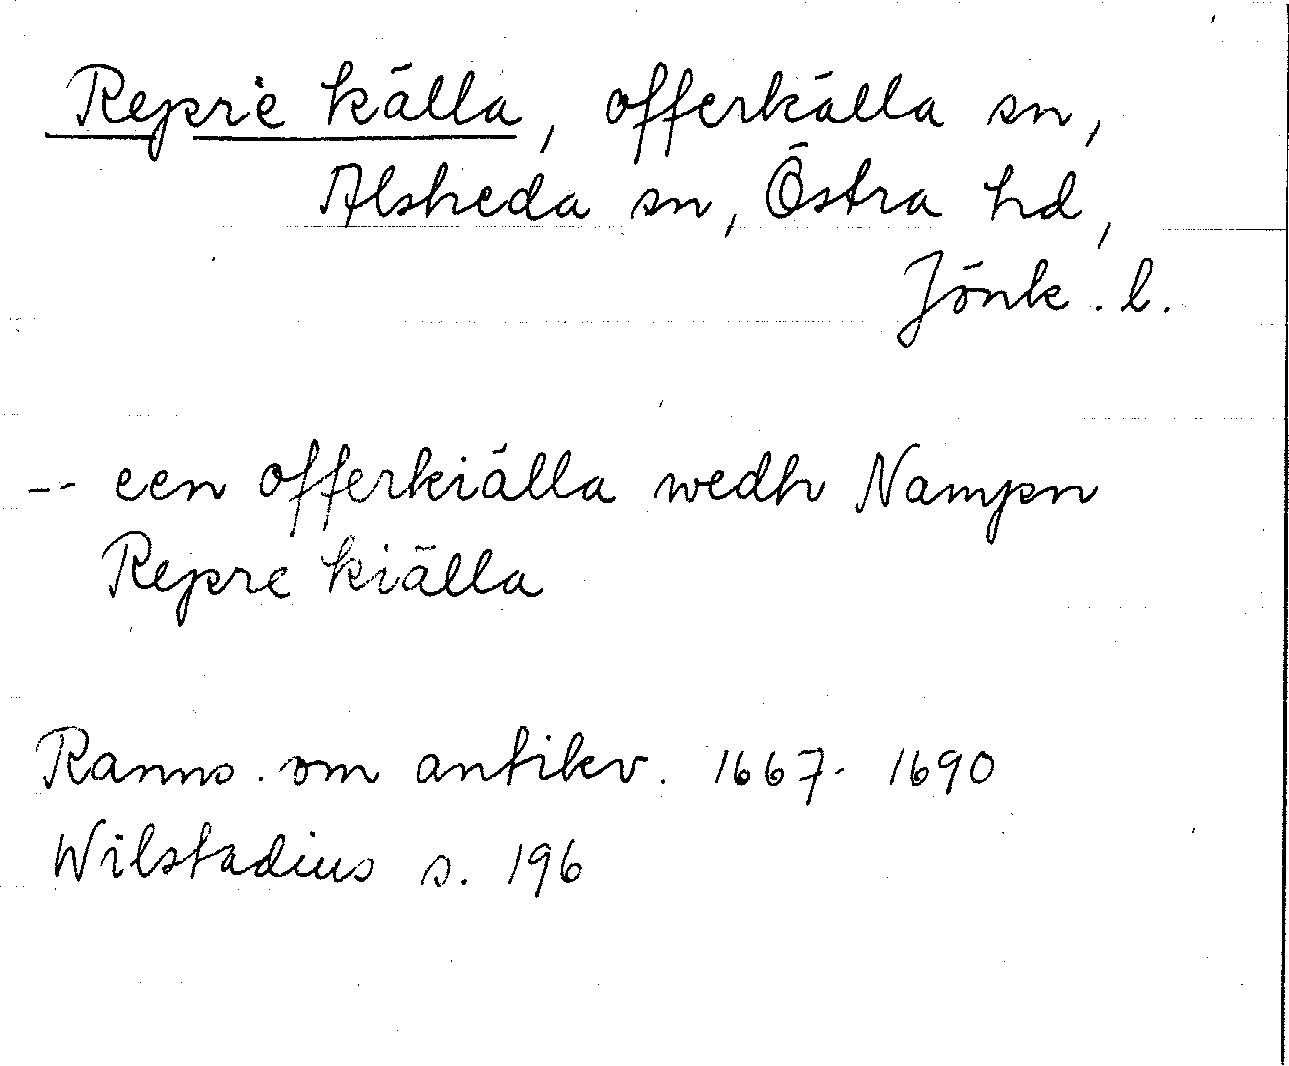 Repre källa, offerkälla sn,
Alsheda sn, Östra hd,
Jönk. l.
-- een offerkiälla wedh Nampn
Repre kiälla
Ranns. om antikv. 1667-1690
Wilstadius s. 196